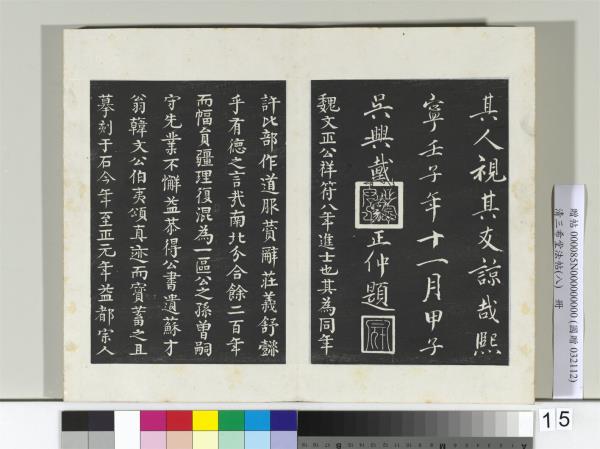 其人視其友諒哉熙
寧壬子年十一月甲子
吳興戴正仲題
魏文正公祥符八年進士也其為同年
許比部作道服贊辭莊義舒懿
乎有德之言哉南北分合餘二百年
而幅員疆理復混為一區公之孫曾嗣
守先業不懈益恭得公書遺蘇才
翁韓文公伯夷頌真迹而寶蓄之且
摹刻于石今年至正元年益都宗人
贈帖 000085N000000000 (國贈 032112)
清三希堂法帖(八) 冊
15